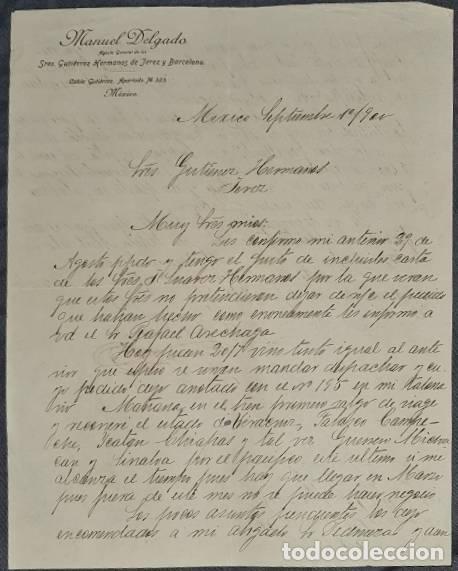 Manuel Delgado
Agente General de los
Sres. Gutiérrez Hermanos de Jerez y Barcelona
Cable Gutiérrez, Apartado № 323
México
Mexico Septiembre 1º/900
Sres Gutierrez Hermanos
Jerez
Muy Sres mios:
Les confirmo mi anterior 29 de
Agosto ppdo y tengo el gusto de incluirles carta
de los Sres Suarez Hermanos por la que veran
que estos Sres no pretendieron dejar de el pedido
que habian hecho como erroneamente les informo a
Ud el Sr Rafael Arechaga
Hoy pican 20/7 vino tinto igual al ante
rior que se sirvan mandar despachar y cu
yo pedido dejo anotado con el nº 195 en mi
Mañana en el tren primero salgo de viage
y recorrere el estado de Veracruz, Tabasco Campe-
che, Yucatan Chiapas y tal vez Guerrero Michoa
can y Sinaloa por el pacifico este ultimo si me
alcanza el tiempo pues hay que llegar en Marzo
pues fuera de este mes no se puede hacer negocio
Los pocos asuntos pendientes los dejo
encomendados a mi abogado Sr y aun
todocoleccion